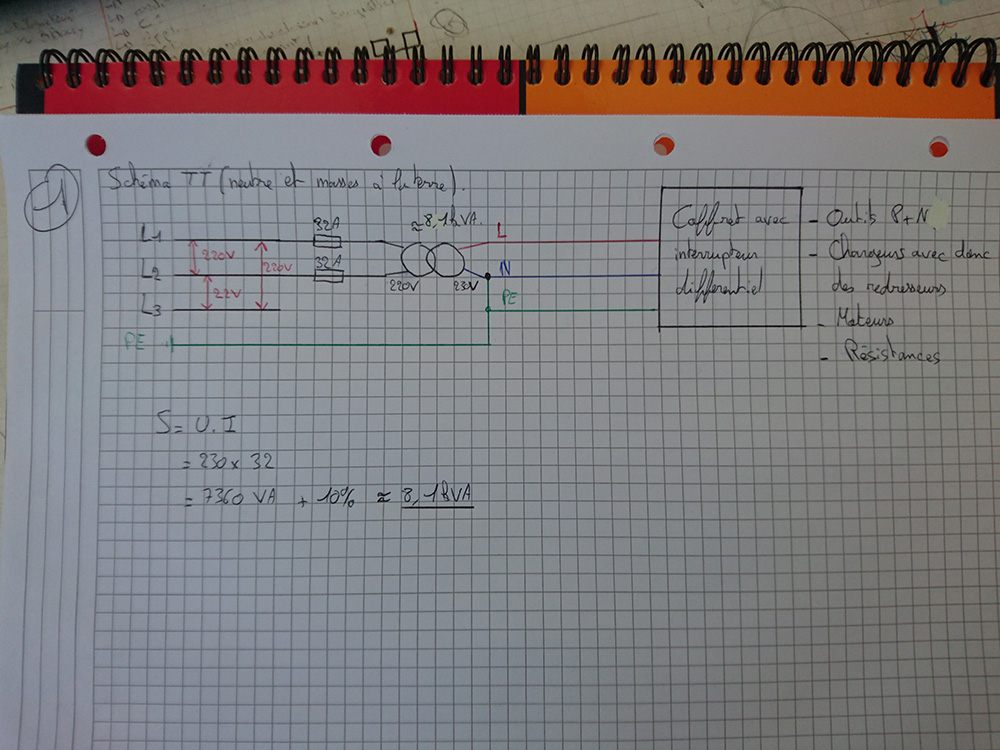 1
Schéma TT (neutre et masses à la terre).
L1
32A
≈8,1kVA
L
220V
220V
L2
32A
220V
230V
N
22V
L3
PE
PE
Coffret avec
interrupteur
différentiel
- Outils P+N
- Chargeurs avec donc
des redresseurs
- Moteurs
- Résistances
S = U.I
= 230 x 32
= 7360 VA + 10% ≈ 8,1kVA